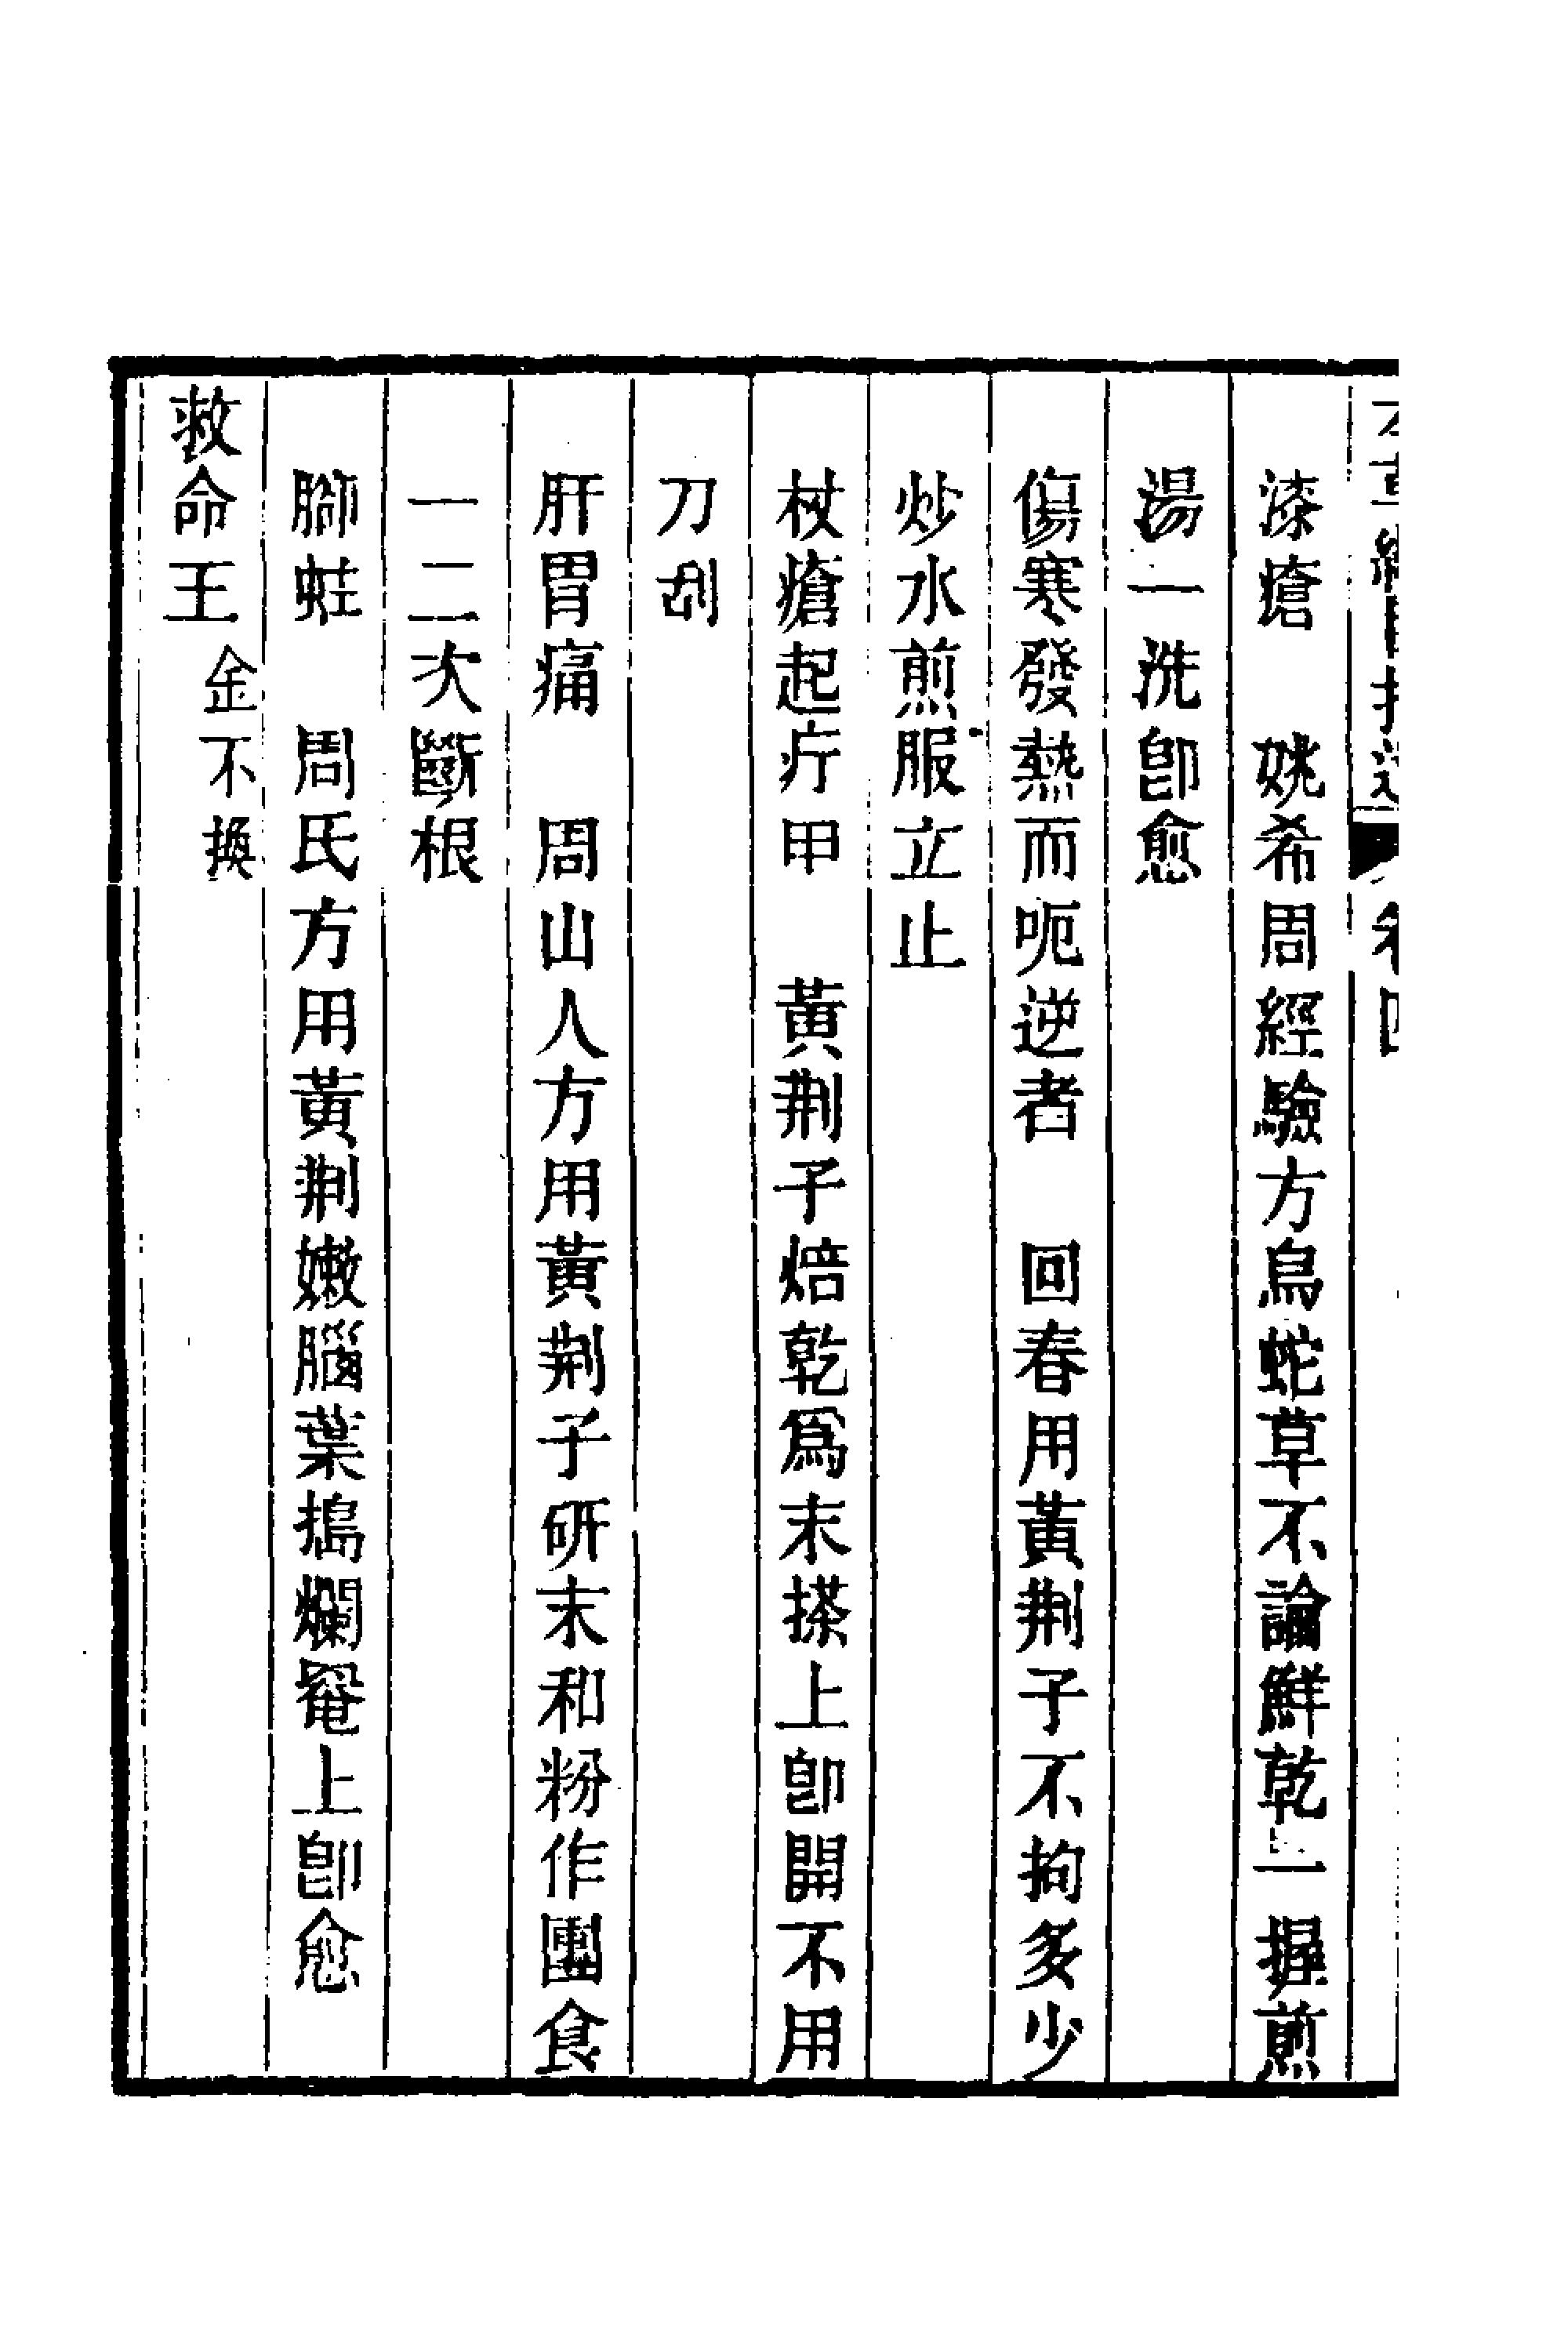 漆瘡　姚希周經驗方烏蛇草不論鮮乾一握煎
湯一洗卽愈
傷寒發熱而呃逆者　回春用黃荆子不拘多少
炒水煎服立止
杖瘡起疔甲　黃荆子焙乾爲末搽上卽開不用
刀刮
肝胃痛　周山人方用黃荆子研末和粉作團食
一二次斷根
腳蛀　周氏方用黃荆嫩腦葉搗爛罨上卽愈
救命王金不換